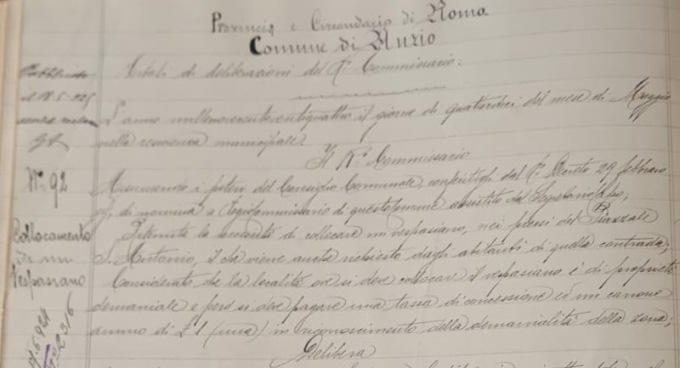 Provincia e Circondario di Roma
Comune di Anzio
Pubblicato
il 18.5.925
Estratti di deliberazioni del R° Commissario:
L'anno millenovecentoventiquattro il giorno di quattordici del mese di Maggio
nella residenza municipale
Il R° Commissario
N° 92
Assumendo i poteri del Consiglio Comunale conferitigli dal R° Decreto 29 febbraio
di nomina a Regio Commissario di questo Comune assistito dal Segretario Capo;
Collocamento
di un
Vespasiano
Ritenuta la necessità di collocare un vespasiano, nei pressi del Piazzale
S. Antonio, il che viene anche richiesto dagli abitanti di quella contrada;
Considerato che la località ove si deve collocare il vespasiano è di proprietà
demaniale e però si deve pagare una tassa di concessione ed un canone
annuo di £ 1 (una) in riconoscimento della demanialità della zona;
Delibera